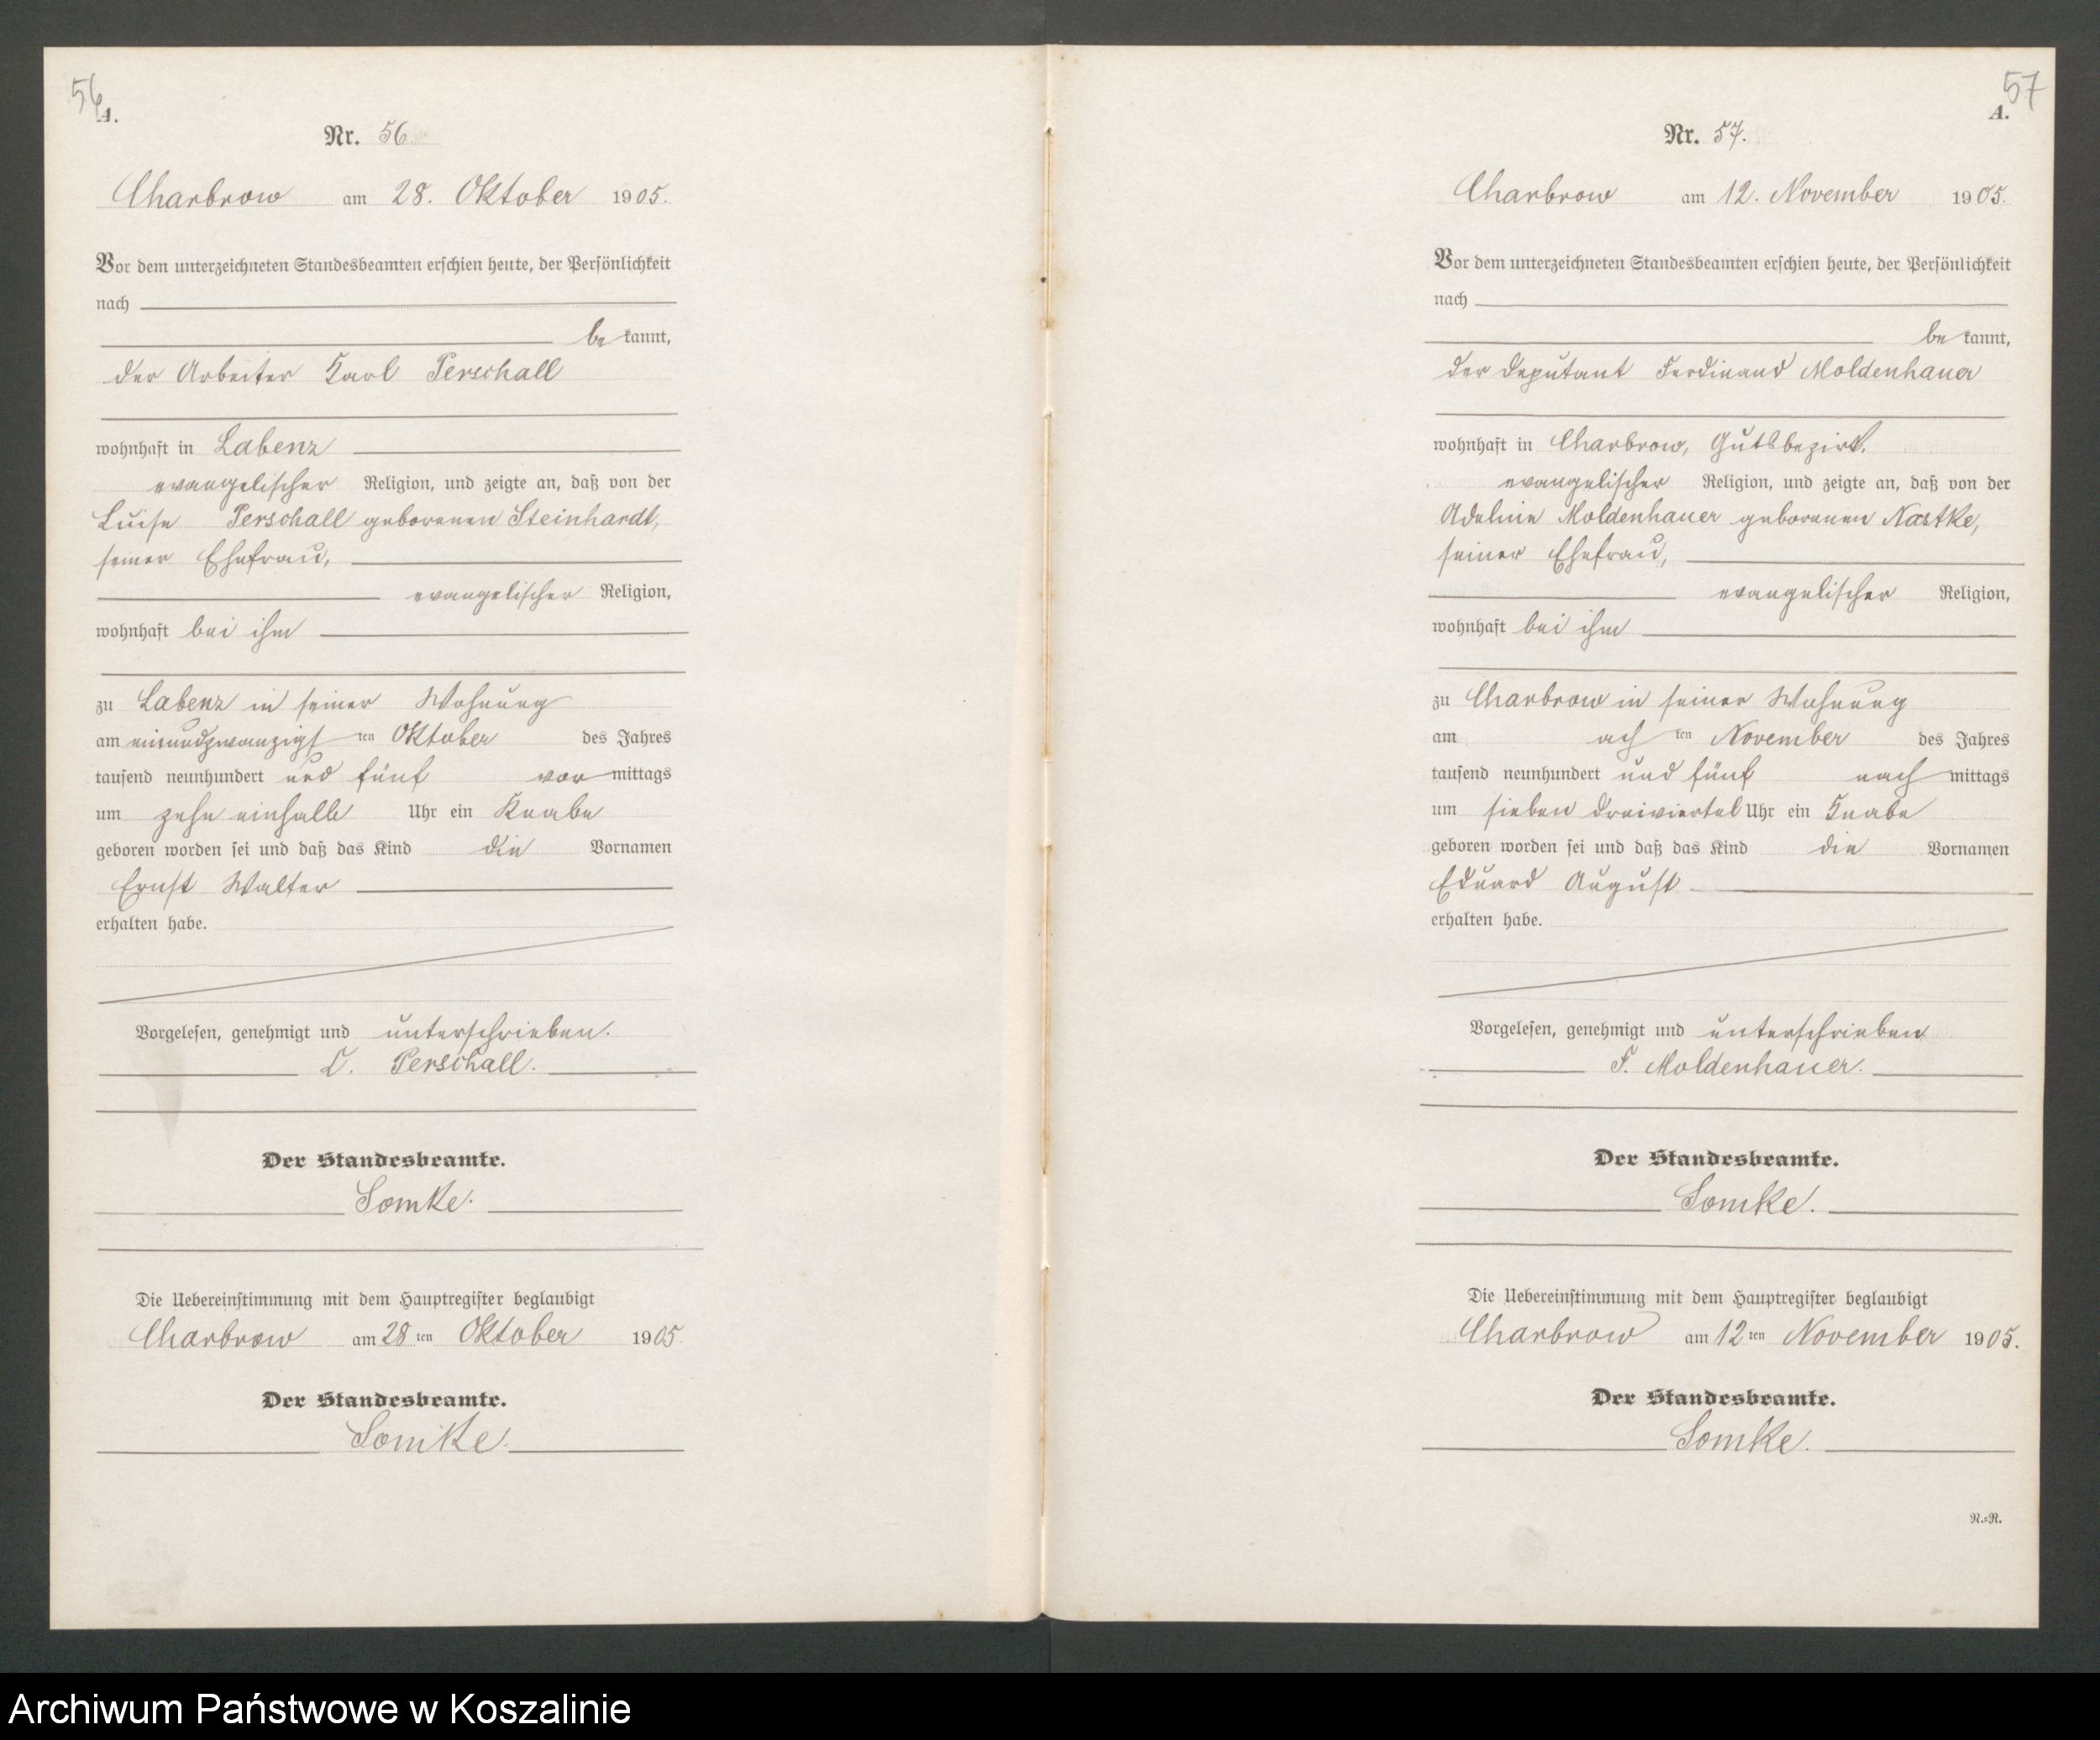 56
A.
Nr. 56
Charbrow am 28. Oktober 1905.
Vor dem unterzeichneten Standesbeamten erschien heute, der Persönlichkeit
nach
be kannt,
der Arbeiter Karl Perschall
wohnhaft in Labenz
evangelischer Religion, und zeigte an, daß von der
Luise Perschall geborenen Steinhardt,
seiner Ehefrau,
evangelischer Religion,
wohnhaft bei ihm
zu Labenz in seiner Wohnung
am einundzwanzigs ten Oktober des Jahres
tausend neunhundert und fünf vor mittags
um zehn einhalb Uhr ein Knabe
geboren worden sei und daß das Kind die Vornamen
Ernst Walter
erhalten habe.
Vorgelesen, genehmigt und unterschrieben.
Perschall.
Der Standesbeamte.
Somke.
Die Uebereinstimmung mit dem Hauptregister beglaubigt
Charbrow am 28 ten Oktober 1905
Der Standesbeamte.
Somke.
57
A.
Nr. 57.
Charbrow am 12. November 1905.
Vor dem unterzeichneten Standesbeamten erschien heute, der Persönlichkeit
nach
be kannt,
der Deputant Ferdinand Moldenhauer
wohnhaft in Charbrow, Gutsbezirk.
evangelischer Religion, und zeigte an, daß von der
Adeline Moldenhauer geborenen Nastke,
seiner Ehefrau,
evangelischer Religion,
wohnhaft bei ihm
zu Charbrow in seiner Wohnung
am ach ten November des Jahres
tausend neunhundert und fünf nach mittags
um sieben dreiviertel Uhr ein Knabe
geboren worden sei und daß das Kind die Vornamen
Eduard August
erhalten habe.
Vorgelesen, genehmigt und unterschrieben
F. Moldenhauer.
Der Standesbeamte.
Somke.
Die Uebereinstimmung mit dem Hauptregister beglaubigt
Charbrow am 12 ten November 1905.
Der Standesbeamte.
Somke.
R.=R.
Archiwum Państwowe w Koszalinie